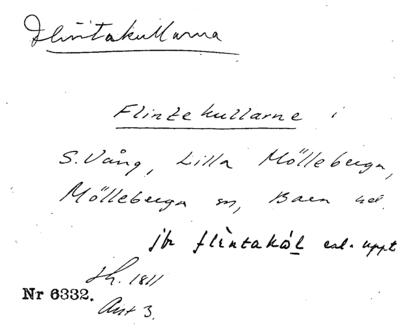 Flintakullarna
Flintekullarne i
S. Vång, Lilla Mölleberga,
Mölleberga sn, Bara hd.
jfr flintakól enl. uppt
Sh. 1811
Nr 6332.
Ant 3.